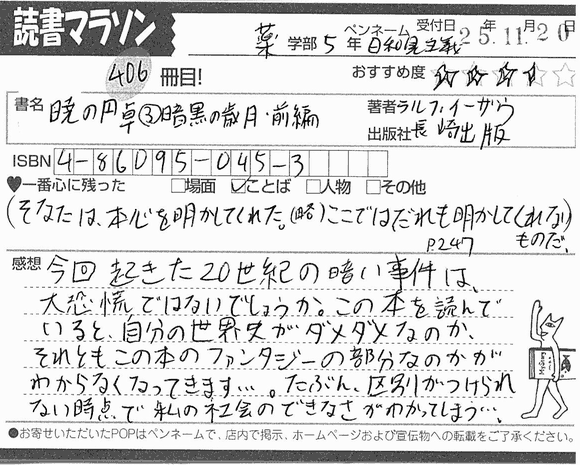 読書マラソン
薬 学部 5 年 ペンネーム 日和見主義 受付日 25.年11.月20日
406 冊目!
おすすめ度 ☆☆☆☆☆
書名 暁の円卓③暗黒の歳月・前編
著者 ラルフ・イーザウ
出版社 長崎出版
ISBN 4-86095-045-3
♥一番心に残った □場面 ☑ことば □人物 □その他
(そなたは、本心を明かしてくれた。(略)ここではだれも明かしてくれない
ものだ。
P247
感想 今回起きた20世紀の暗い事件は、
大恐慌ではないでしょうか。この本を読んで
いると、自分の世界史がダメダメなのか、
それともこの本のファンタジーの部分なのかが
わからなくなってきます…。たぶん、区別がつけられ
ない時点で私の社会のできなさがわかってしまう…。
●お寄せいただいたPOPはペンネームで、店内で掲示、ホームページおよび宣伝物への転載をご了承ください。